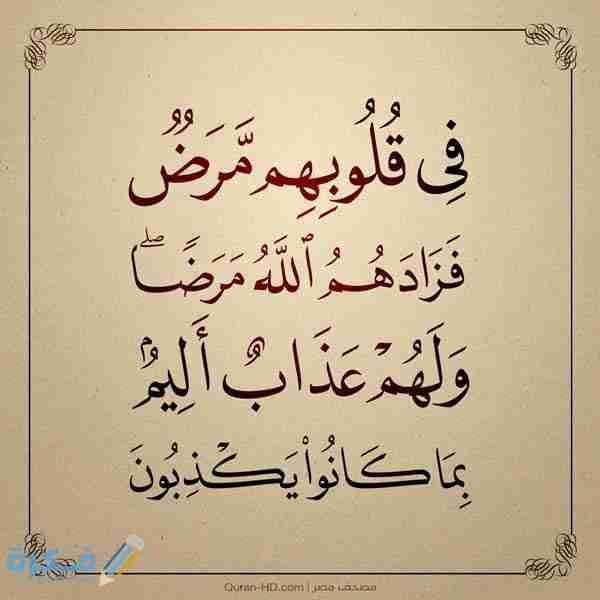 فِى قُلُوبِهِم مَّرَضٌ
فَزَادَهُمُ ٱللَّهُ مَرَضًۭا ۖ
وَلَهُمْ عَذَابٌ أَلِيمٌۢ
بِمَا كَانُوا۟ يَكْذِبُونَ
فكرة
Quran-HD.com | مصحف مصر